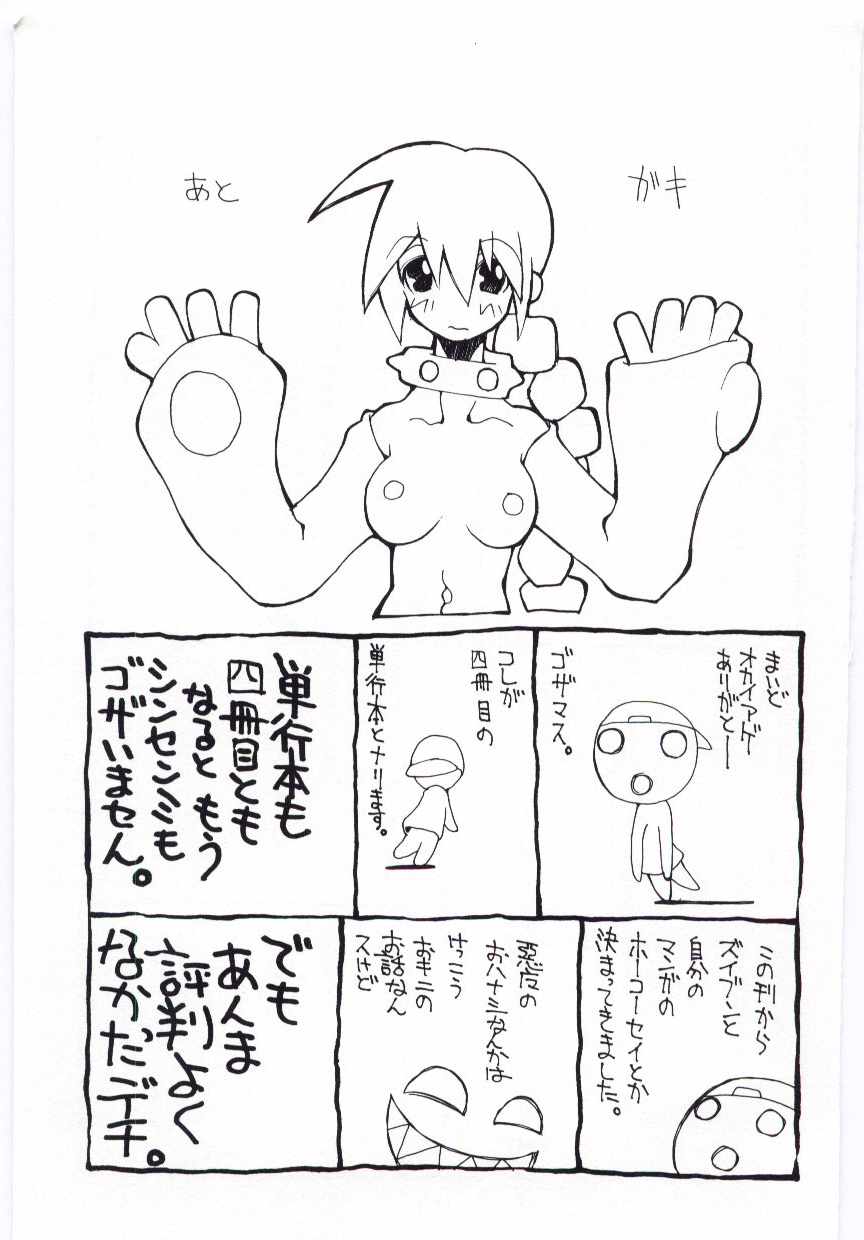 あと
ガキ
まいど
オカイアゲ
ありがとー
ゴザマス。
コレが
四冊目の
単行本とナリます。
単行本も
四冊目とも
なると もう
シンセンミも
ゴザいません。
この刊から
ズイブンと
自分の
マンガの
ホーコーセイとか
決まってきました。
悪役の
おハナシなんかは
けっこう
おキニの
お話なん
スけど
でも
あんま
評判よく
なかったデチ。